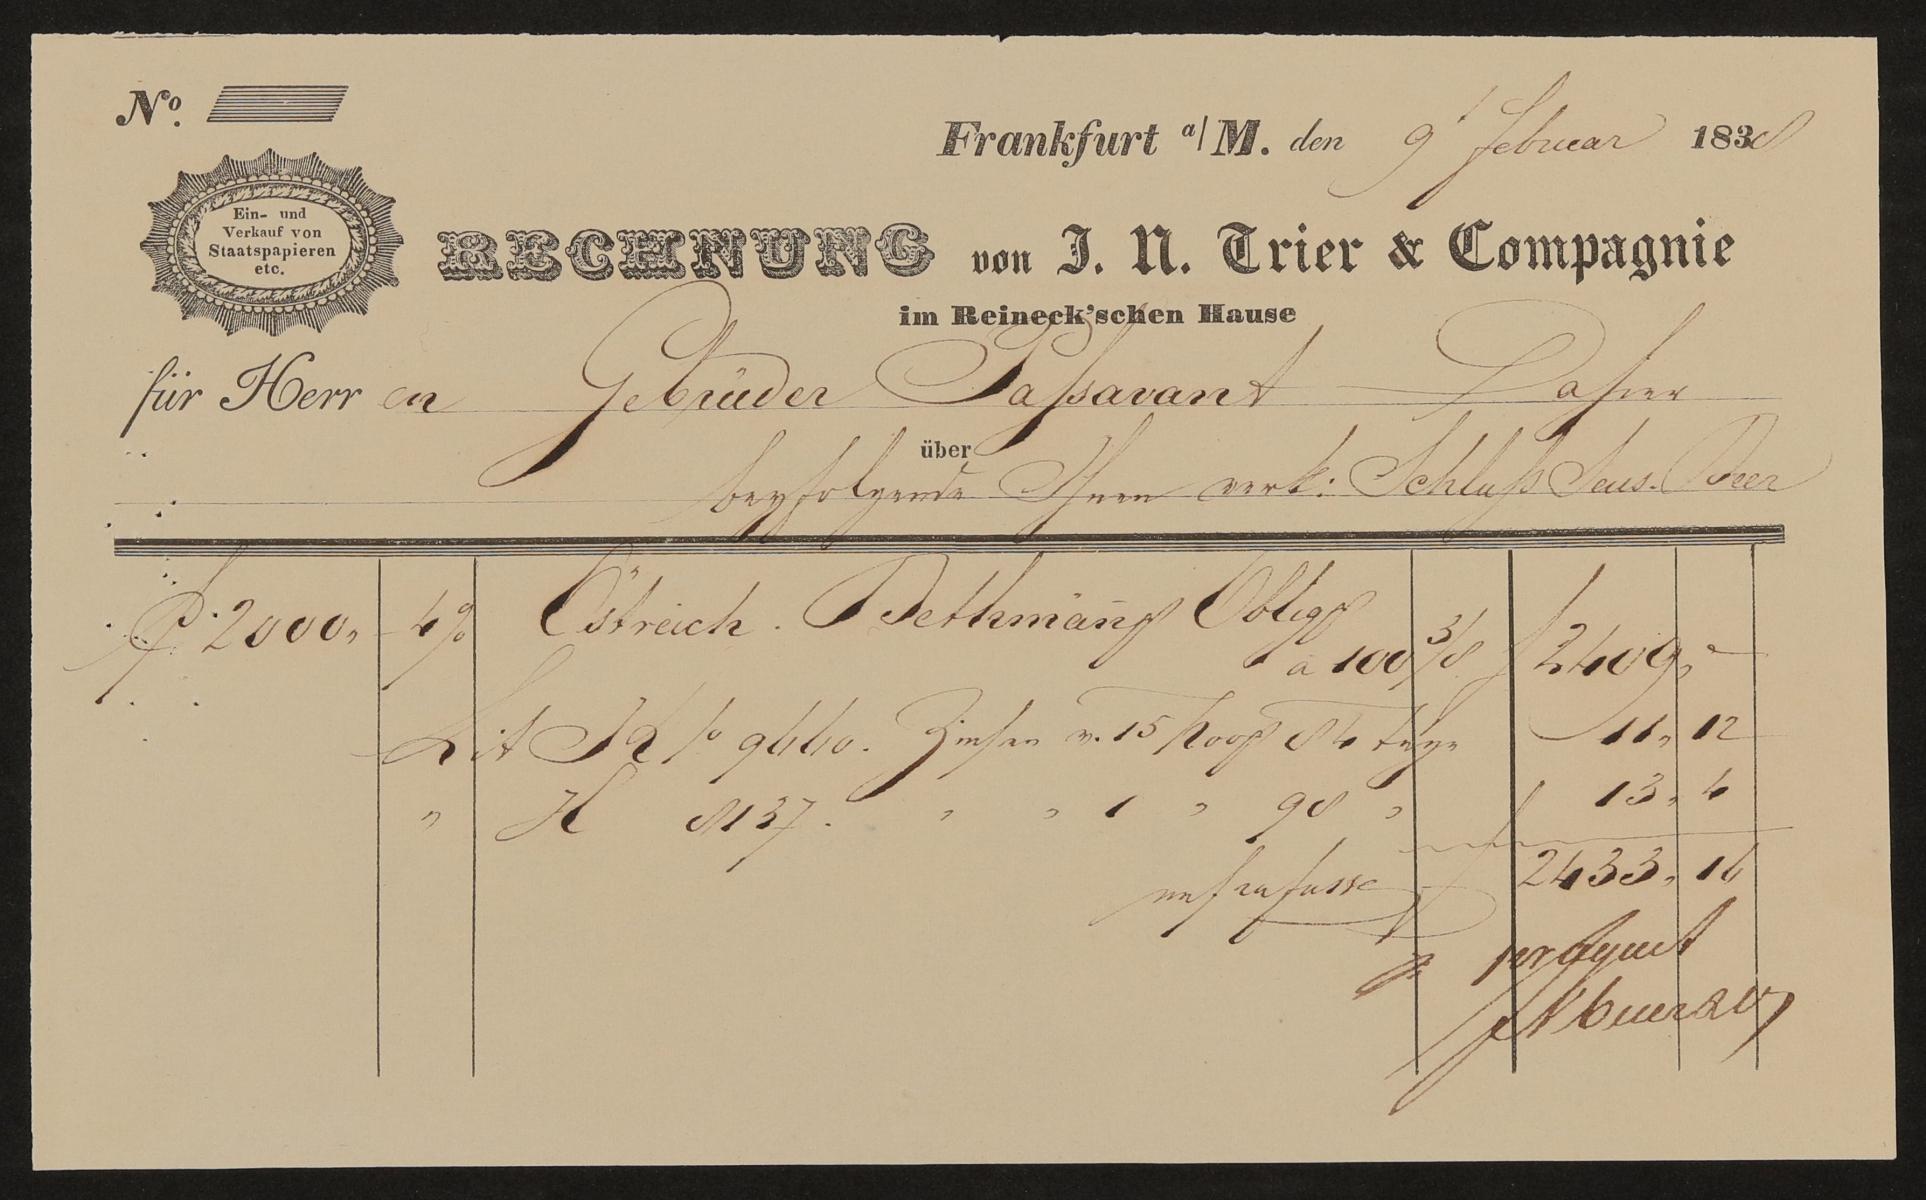 No.
Frankfurt a/M. den 9t Februar 1838
Ein- und
Verkauf von
Staatspapieren
etc.
RECHNUNG von J. N. Trier & Compagnie
im Reineck'schen Hause
für Herr en Gebrüder Paßavant Dahier
über
beyfolgende Ihnen verk: Schluß Sens. Beer
f 2000,, 4% Östreich. Bethmänn Oblig
a 100 3/8 f 2409,, –
Lit No 9660. Zinsen v. 15 84 tage 11,, 12
" H 8137. " " 1 " 98 " f 13,, 4
f 2433,, 16